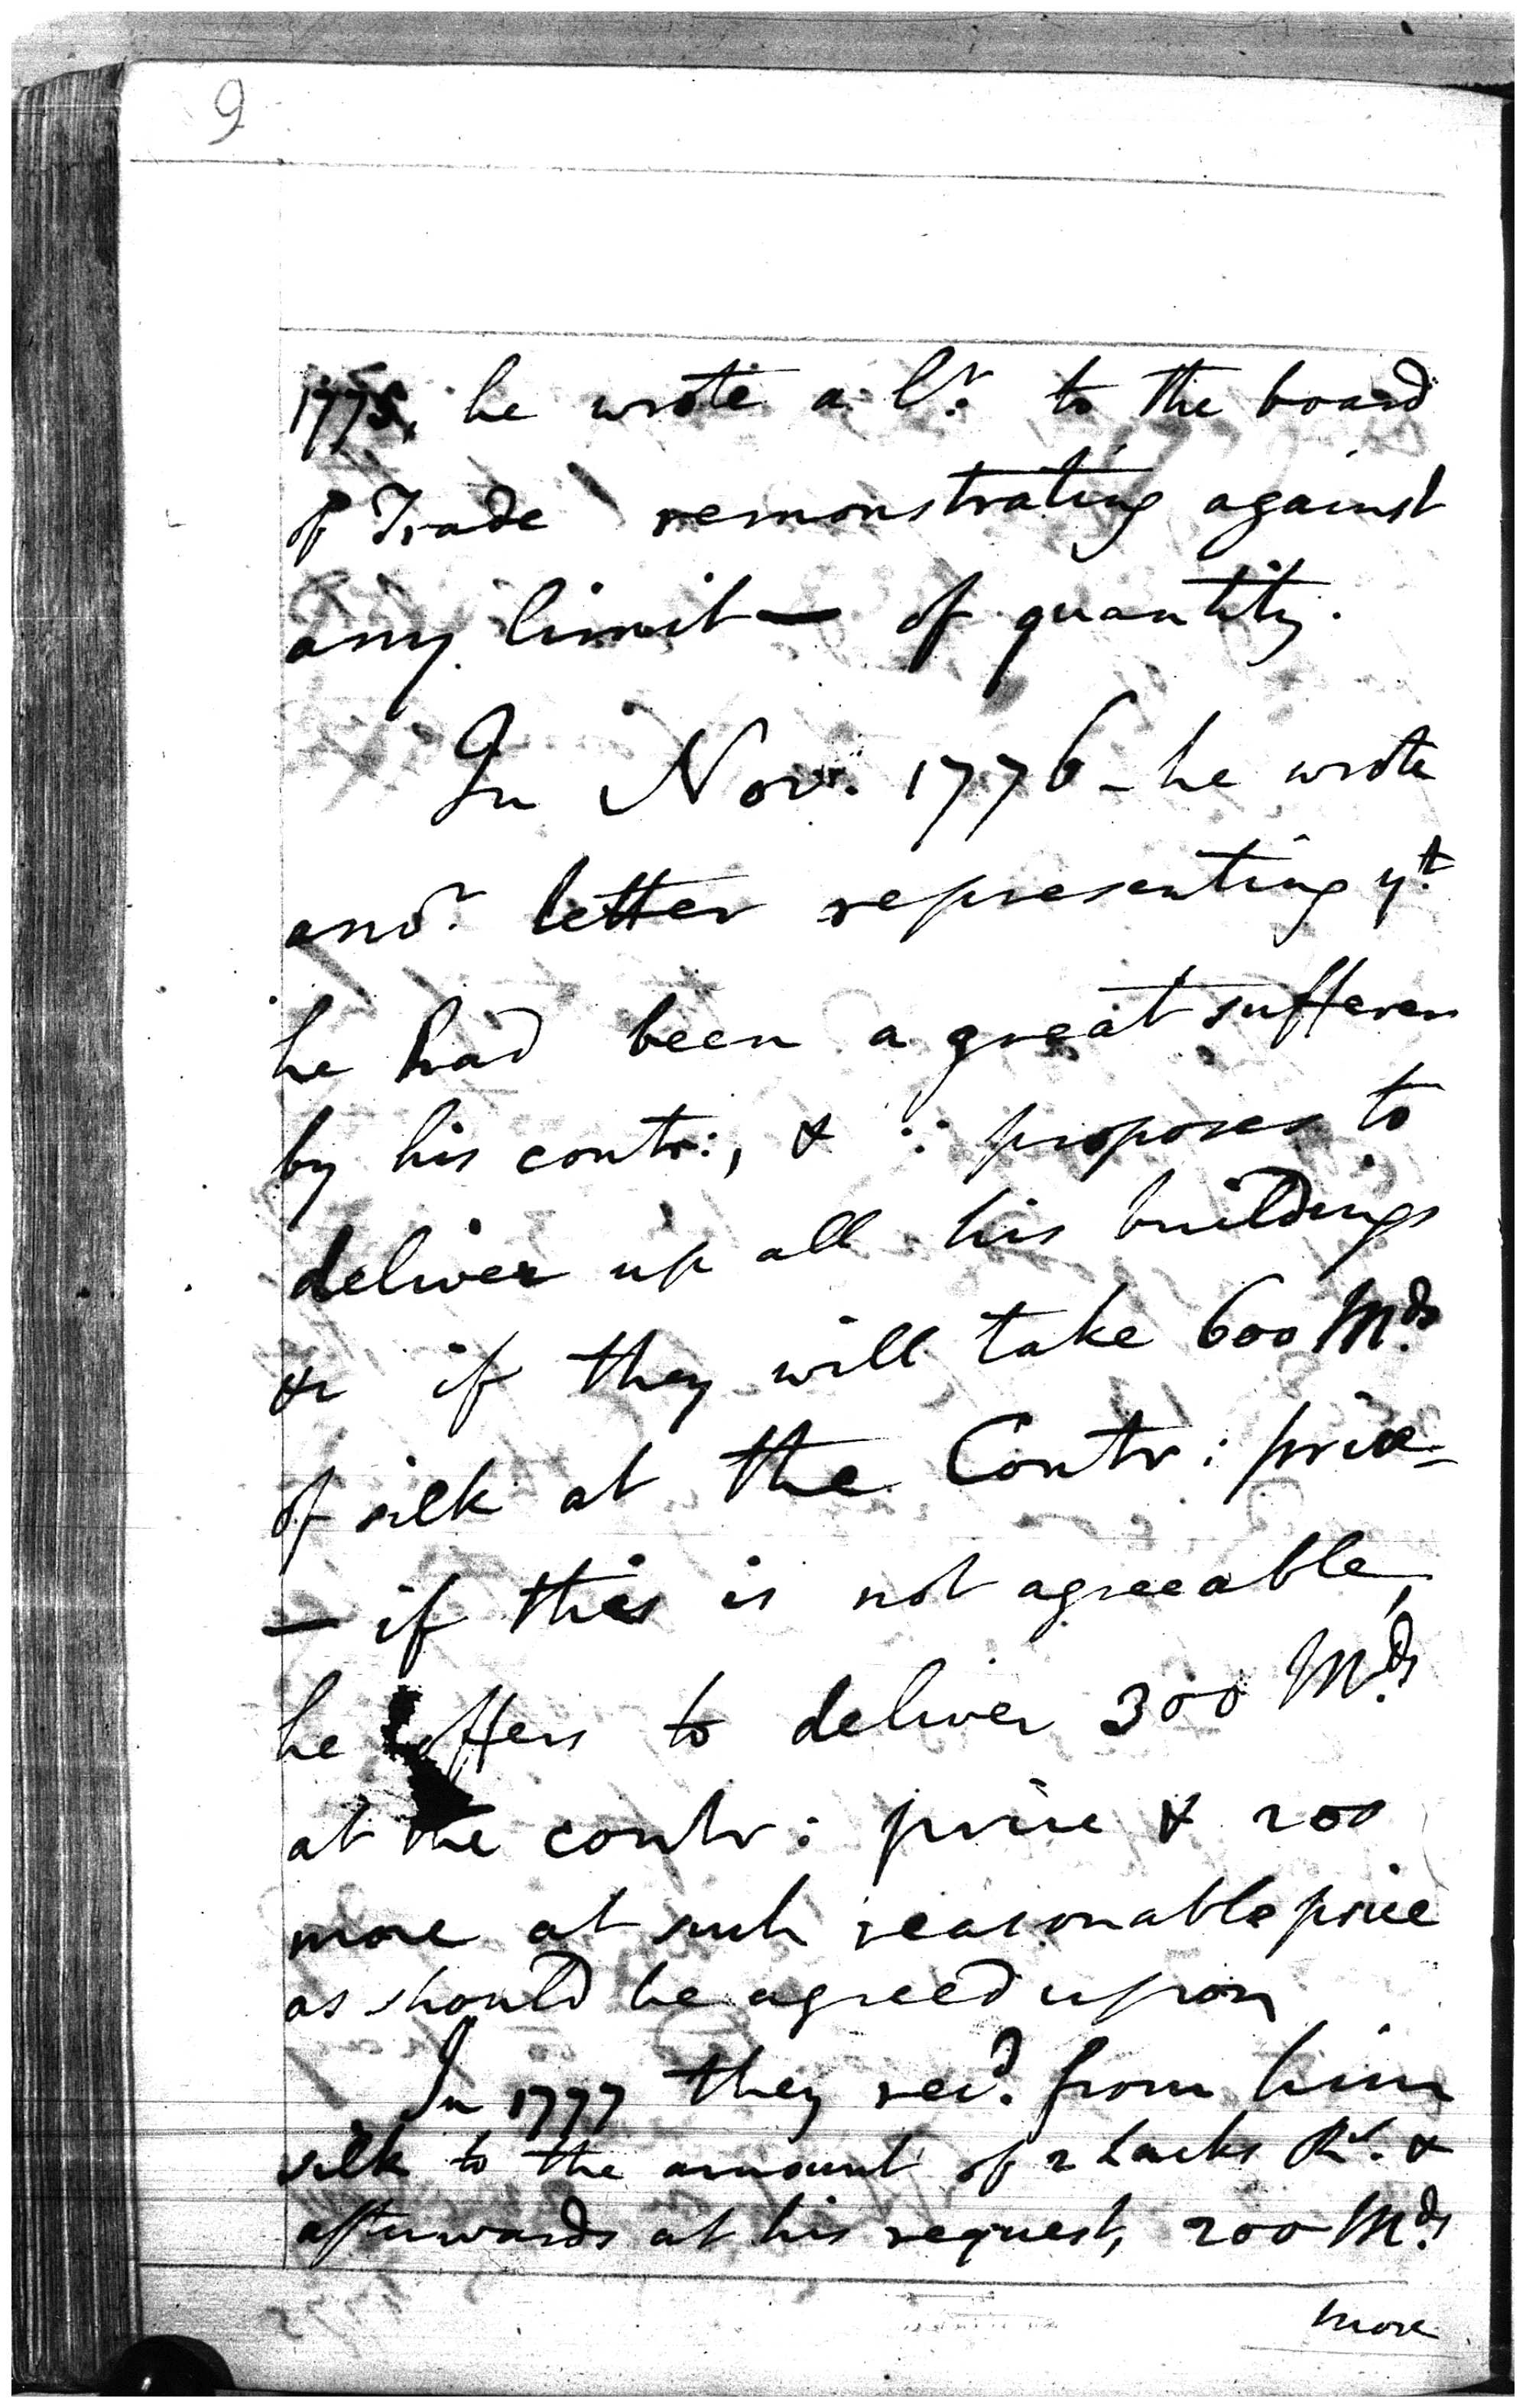 9
1775, he wrote a lr. to the board
of Trade remonstrating against
any limit — of quantity.
In Novr. 1776 - he wrote
anor. letter representing yt.
he had been a great sufferer
by his contr:, & ∴ proposes to
deliver up all his buildings
&c if they will take 600 Mds.
of silk at the Contr: price -
— if this is not agreeable,
he offers to deliver 300 Mds.
at the contr: price & 200
more at such reasonable price
as should be agreed upon
In 1777 they recd. from him
silk to the amount of 2 Lacks Rs. &
afterwards at his request, 200 Mds.
more